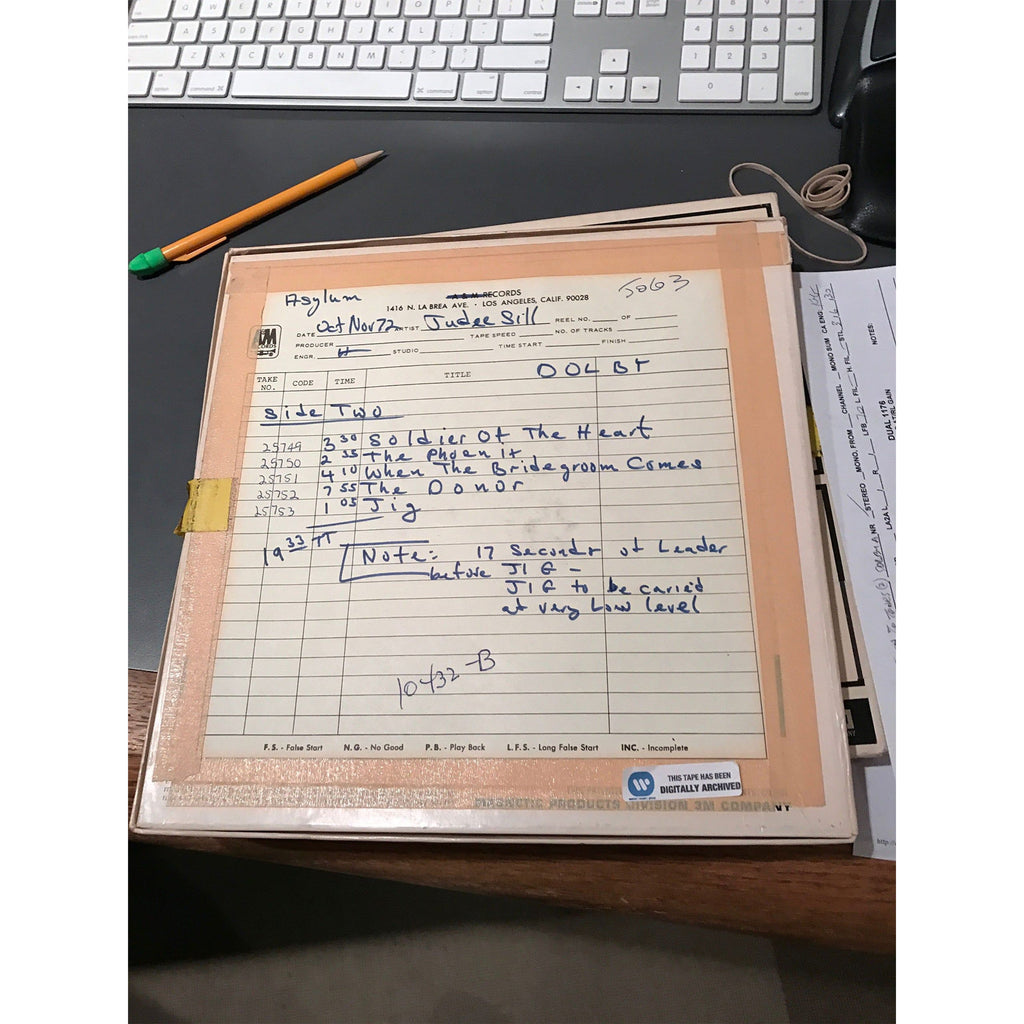 Asylum
A & M RECORDS
5063
1416 N. LA BREA AVE. • LOS ANGELES, CALIF. 90028
DATE Oct Nov 72 ARTIST Judee Sill REEL NO. OF
PRODUCER TAPE SPEED NO. OF TRACKS
ENGR. H STUDIO TIME START FINISH
TAKE NO. CODE TIME TITLE DOLBY
Side Two
25749 3 30 Soldier Of The Heart
25750 2 35 The Phoenix
25751 4 10 When The Bridegroom Comes
25752 7 55 The Donor
25753 1 05 Jig
19 33 TT
Note: 17 Seconds of Leader
before JIG -
JIG to be caried
at very Low level
10432-B
F.S. - False Start N.G. - No Good P.B. - Play Back L.F.S. - Long False Start INC. - Incomplete
THIS TAPE HAS BEEN
DIGITALLY ARCHIVED
MAGNETIC PRODUCTS DIVISION 3M COMPANY
STEREO MONO. FROM CHANNEL MONO SUM
NOTES:
DUAL 1176
LA2A L R
command option control
shift
return
enter